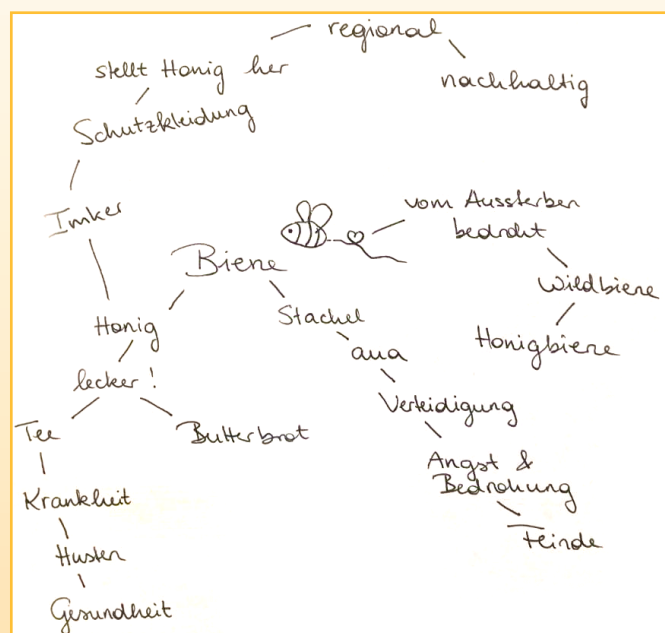 regional
stellt Honig her
nachhaltig
Schutzkleidung
Imker
vom Aussterben
bedroht
Biene
Wildbiene
Honig
Stachel
Honigbiene
aua
lecker!
Verteidigung
Tee
Butterbrot
Angst &
Bedrohung
Krankheit
Feinde
Husten
Gesundheit